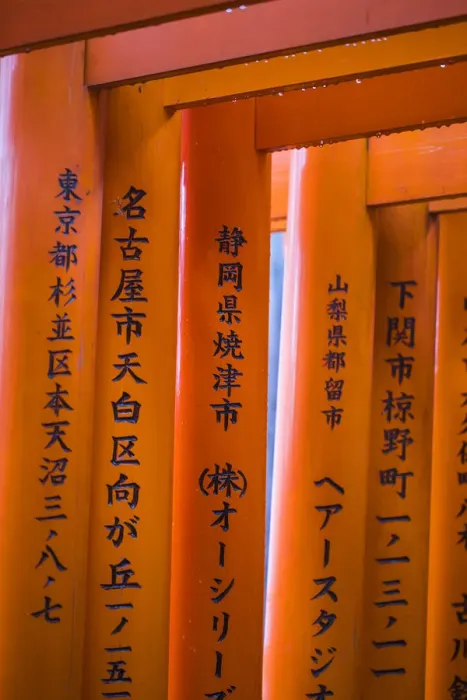 東京都杉並区本天沼三ノ八ノ七
名古屋市天白区向が丘一ノ一五一
静岡県焼津市 (株)オーシリーズ
山梨県都留市 ヘアースタジオ
下関市椋野町一ノ一三ノ一一